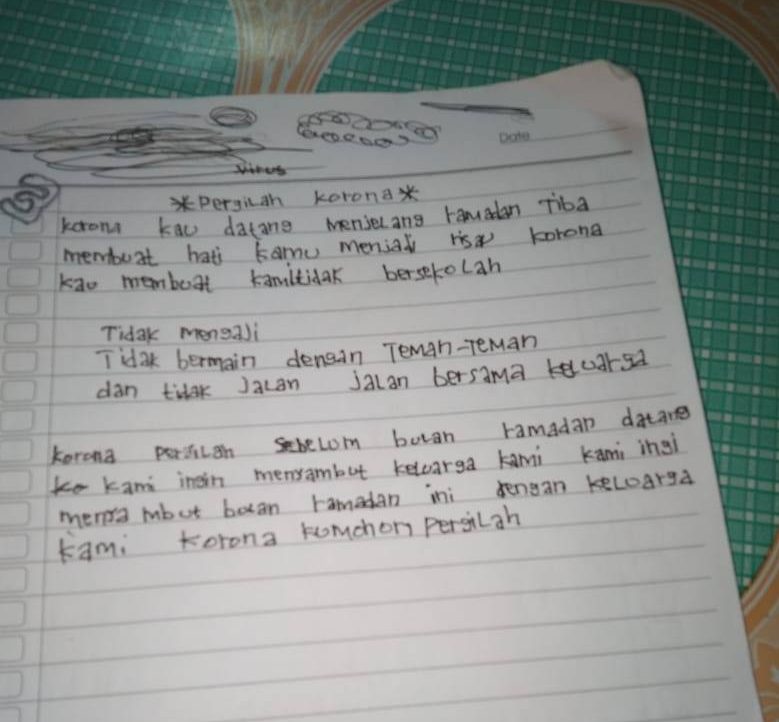 Date
Virus
*Pergilah korona*
korona kau datang menjelang ramadan Tiba
membuat hati kamu menjadi risau korona
kau membuat kamitidak bersekolah
Tidak mengaji
Tidak bermain dengan Teman-Teman
dan tidak Jalan jalan bersama keluarga
korona pergilah sebelum bulan ramadan datang
ke kami ingin menyambut keluarga kami kami ingi
menya mbut bulan ramadan ini dengan keluarga
kami korona kumohon pergilah